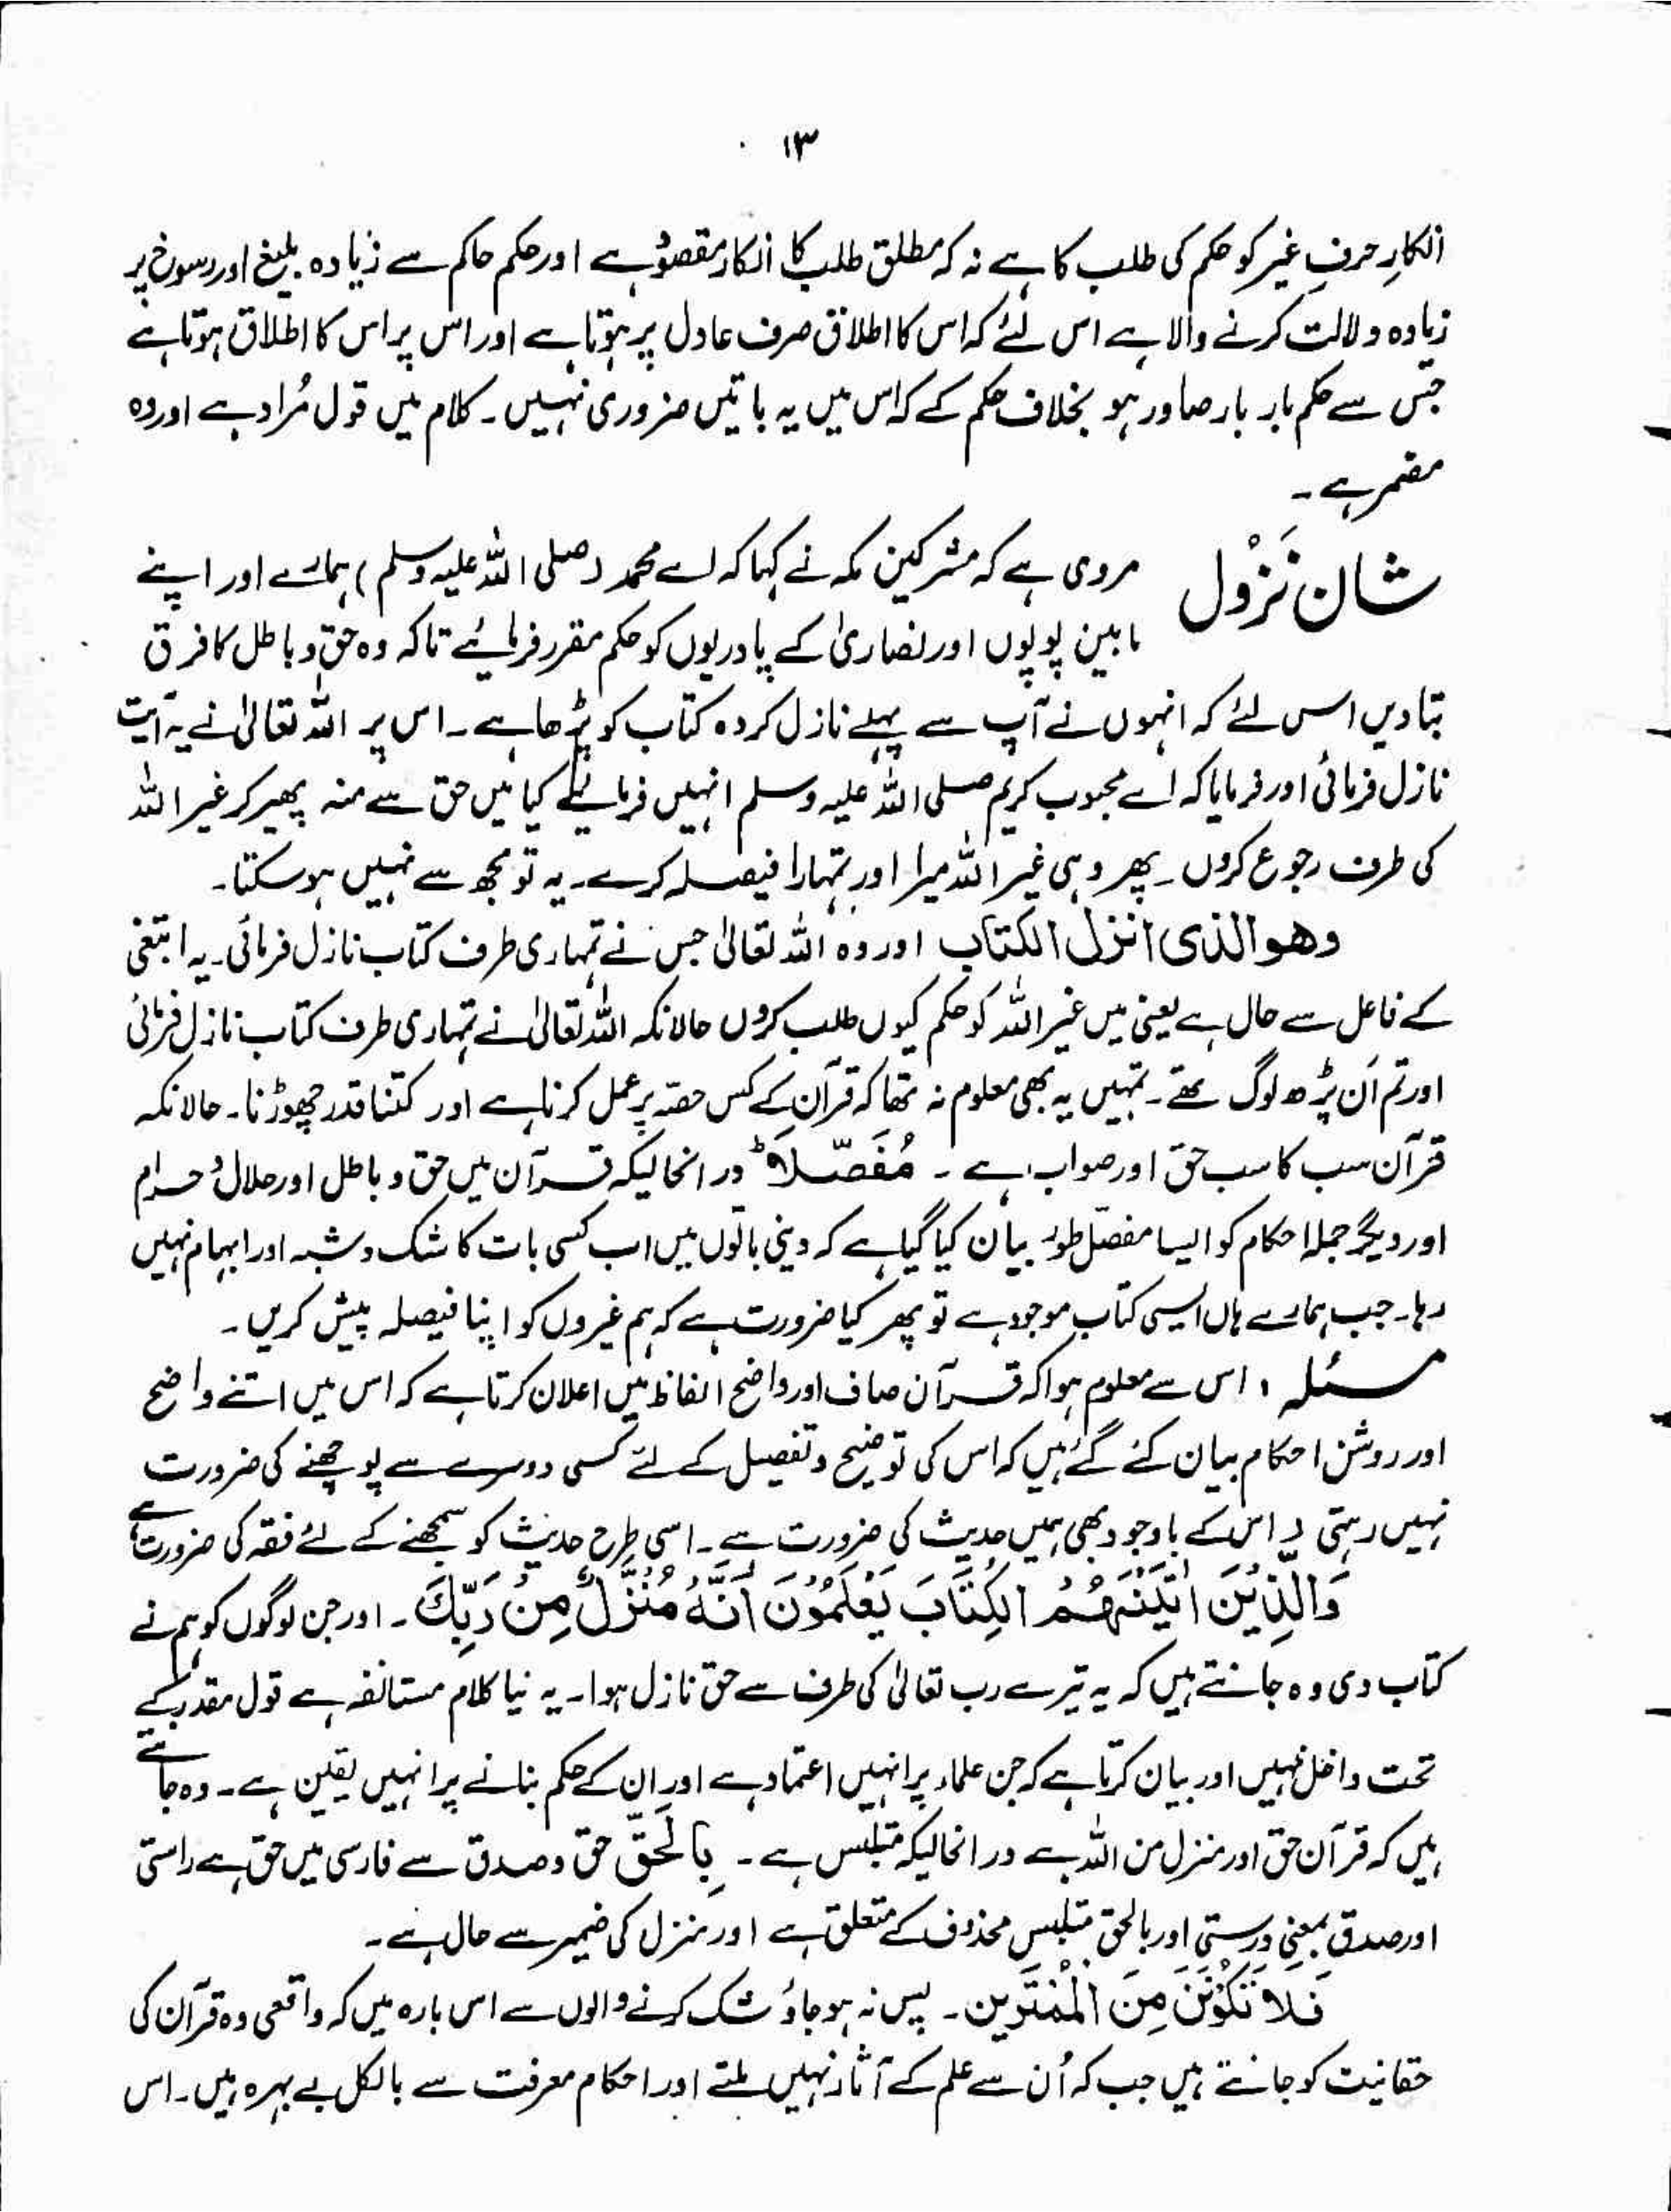 ۱۳
انکارِ حرفِ غیر کو حکم کی طلب کا ہے نہ کہ مطلق طلب کا انکار مقصود ہے اور حکم حاکم سے زیادہ بلیغ اور رسوخ پر
زیادہ دلالت کرنے والا ہے اس لئے کہ اس کا اطلاق صرف عادل پر ہوتا ہے اور اس پر اس کا اطلاق ہوتا ہے
جس سے حکم بار بار صادر ہو بخلاف حکم کے کہ اس میں یہ باتیں ضروری نہیں۔ کلام میں قول مُراد ہے اور وہ
مضمر ہے۔
شان نَزُول مروی ہے کہ مشرکین مکہ نے کہا کہ اے محمد (صلی اللہ علیہ وسلم) ہمارے اور اپنے
مابین پوپوں اور نصاریٰ کے پادریوں کو حکم مقرر فرمائیے تاکہ وہ حق و باطل کا فرق
بتا دیں اس لئے کہ انہوں نے آپ سے پہلے نازل کردہ کتاب کو پڑھا ہے۔ اس پر اللہ تعالیٰ نے یہ آیت
نازل فرمائی اور فرمایا کہ اے محبوب کریم صلی اللہ علیہ وسلم انہیں فرمائیے کیا میں حق سے منہ پھیر کر غیر اللہ
کی طرف رجوع کروں۔ پھر وہی غیر اللہ میرا اور تمہارا فیصلہ کرے۔ یہ تو مجھ سے نہیں ہو سکتا۔
وھو الذی انزل الکتاب اور وہ اللہ تعالیٰ جس نے تمہاری طرف کتاب نازل فرمائی۔ یہ ابتغی
کے فاعل سے حال ہے یعنی میں غیر اللہ کو حکم کیوں طلب کروں حالانکہ اللہ تعالیٰ نے تمہاری طرف کتاب نازل فرمائی
اور تم اَن پڑھ لوگ تھے۔ تمہیں یہ بھی معلوم نہ تھا کہ قرآن کے کس حصّہ پر عمل کرنا ہے اور کتنا قدر چھوڑنا۔ حالانکہ
قرآن سب کا سب حق اور صواب ہے ۔ مُفَصَّلاً ط در انحالیکہ قرآن میں حق و باطل اور حلال و حرام
اور دیگر جملہ احکام کو ایسا مفصّل طور بیان کیا گیا ہے کہ دینی باتوں میں اب کسی بات کا شک و شبہ اور ابہام نہیں
رہا۔ جب ہمارے ہاں ایسی کتاب موجود ہے تو پھر کیا ضرورت ہے کہ ہم غیروں کو اپنا فیصلہ پیش کریں۔
مسئلہ ، اس سے معلوم ہوا کہ قرآن صاف اور واضح الفاظ میں اعلان کرتا ہے کہ اس میں اتنے واضح
اور روشن احکام بیان کئے گئے ہیں کہ اس کی توضیح و تفصیل کے لئے کسی دوسرے سے پوچھنے کی ضرورت
نہیں رہتی اس کے باوجود بھی ہمیں حدیث کی ضرورت ہے۔ اسی طرح حدیث کو سمجھنے کے لئے فقہ کی ضرورت ہے
وَالَّذِیْنَ اٰتَیْنٰھُمُ الْکِتَابَ یَعْلَمُوْنَ اَنَّهٗ مُنَزَّلٌ مِنْ رَبِّكَ ۔ اور جن لوگوں کو ہم نے
کتاب دی وہ جانتے ہیں کہ یہ تیرے رب تعالیٰ کی طرف سے حق نازل ہوا۔ یہ نیا کلام مستانفہ ہے قول مقدر کے
تحت داخل نہیں اور بیان کرتا ہے کہ جن علماء پر انہیں اعتماد ہے اور ان کے حکم بنانے پر انہیں یقین ہے۔ وہ جانتے
ہیں کہ قرآن حق اور منزل من اللہ ہے در انحالیکہ متلبس ہے ۔ بِالْحَقِّ حق و صدق سے فارسی میں حق ہے راستی
اور صدق بمعنی درستی اور بالحق متلبس محذوف کے متعلق ہے اور منزل کی ضمیر سے حال ہے۔
فَلَا تَکُوْنَنَّ مِنَ الْمُمْتَرِین ۔ پس نہ ہو جاؤ شک کرنے والوں سے اس بارہ میں کہ واقعی وہ قرآن کی
حقانیت کو جانتے ہیں جب کہ اُن سے علم کے آثار نہیں ملتے اور احکام معرفت سے بالکل بے بہرہ ہیں۔ اس